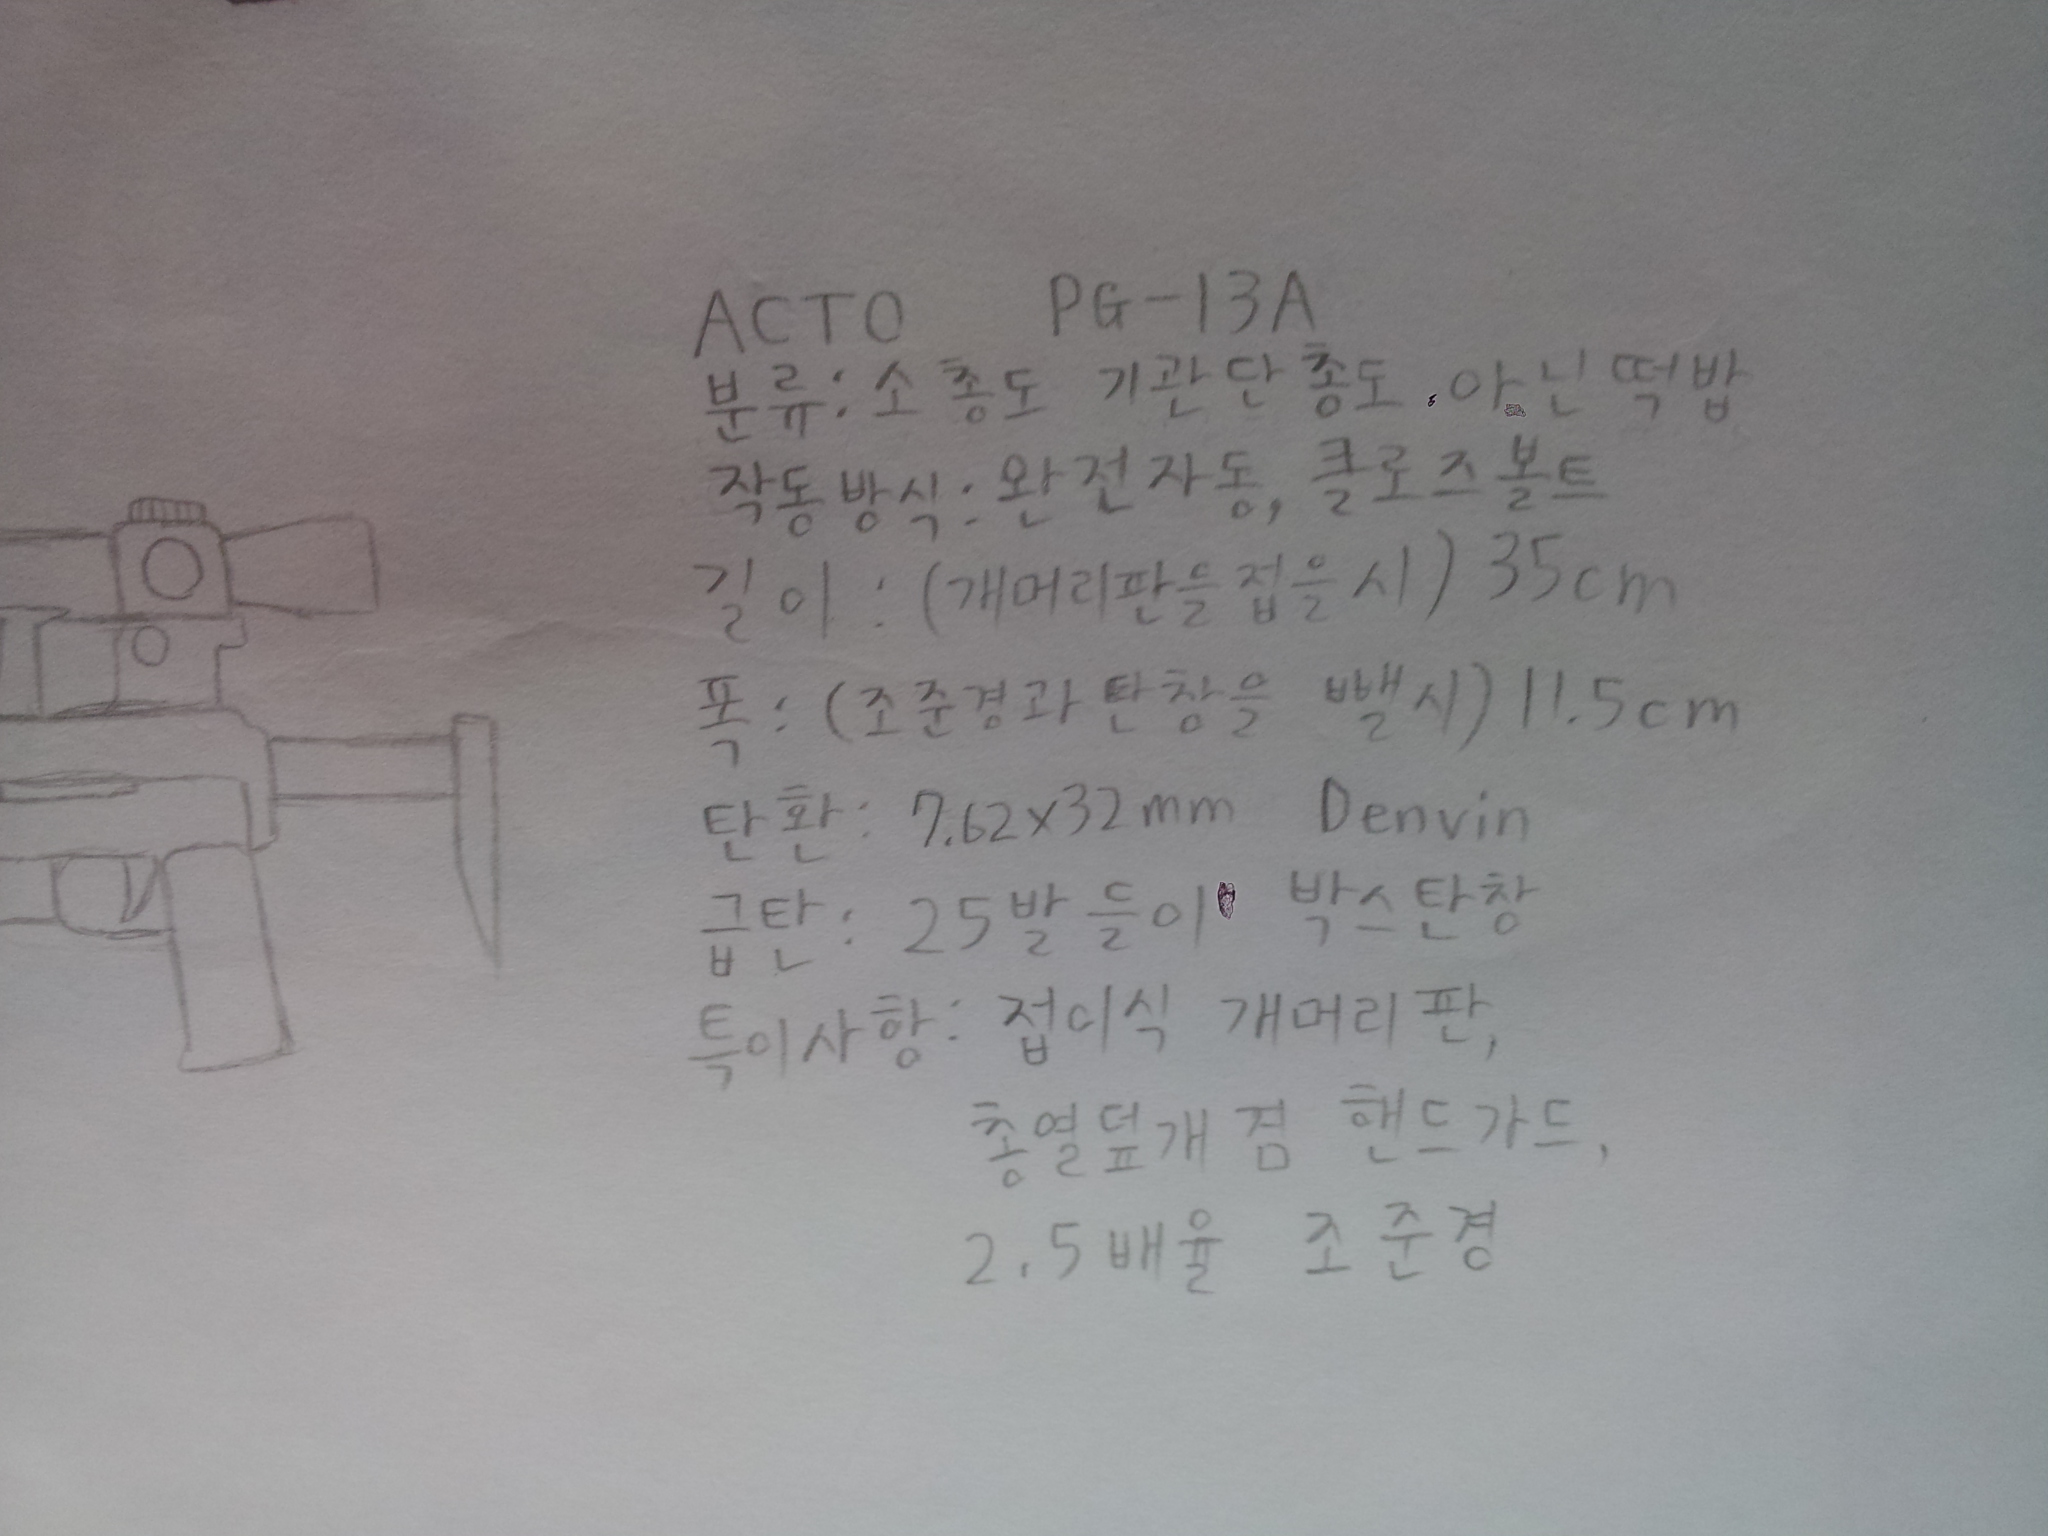 ACTO PG-13A
분류: 소총도 기관단총도 아닌떡밥
작동방식: 완전자동, 클로즈볼트
길이: (개머리판을접을시) 35cm
폭: (조준경과탄창을 뺄시) 11.5cm
탄환: 7.62x32mm Denvin
급탄: 25발 들이 박스탄창
특이사항: 접이식 개머리판,
총열덮개 겸 핸드가드,
2.5배율 조준경